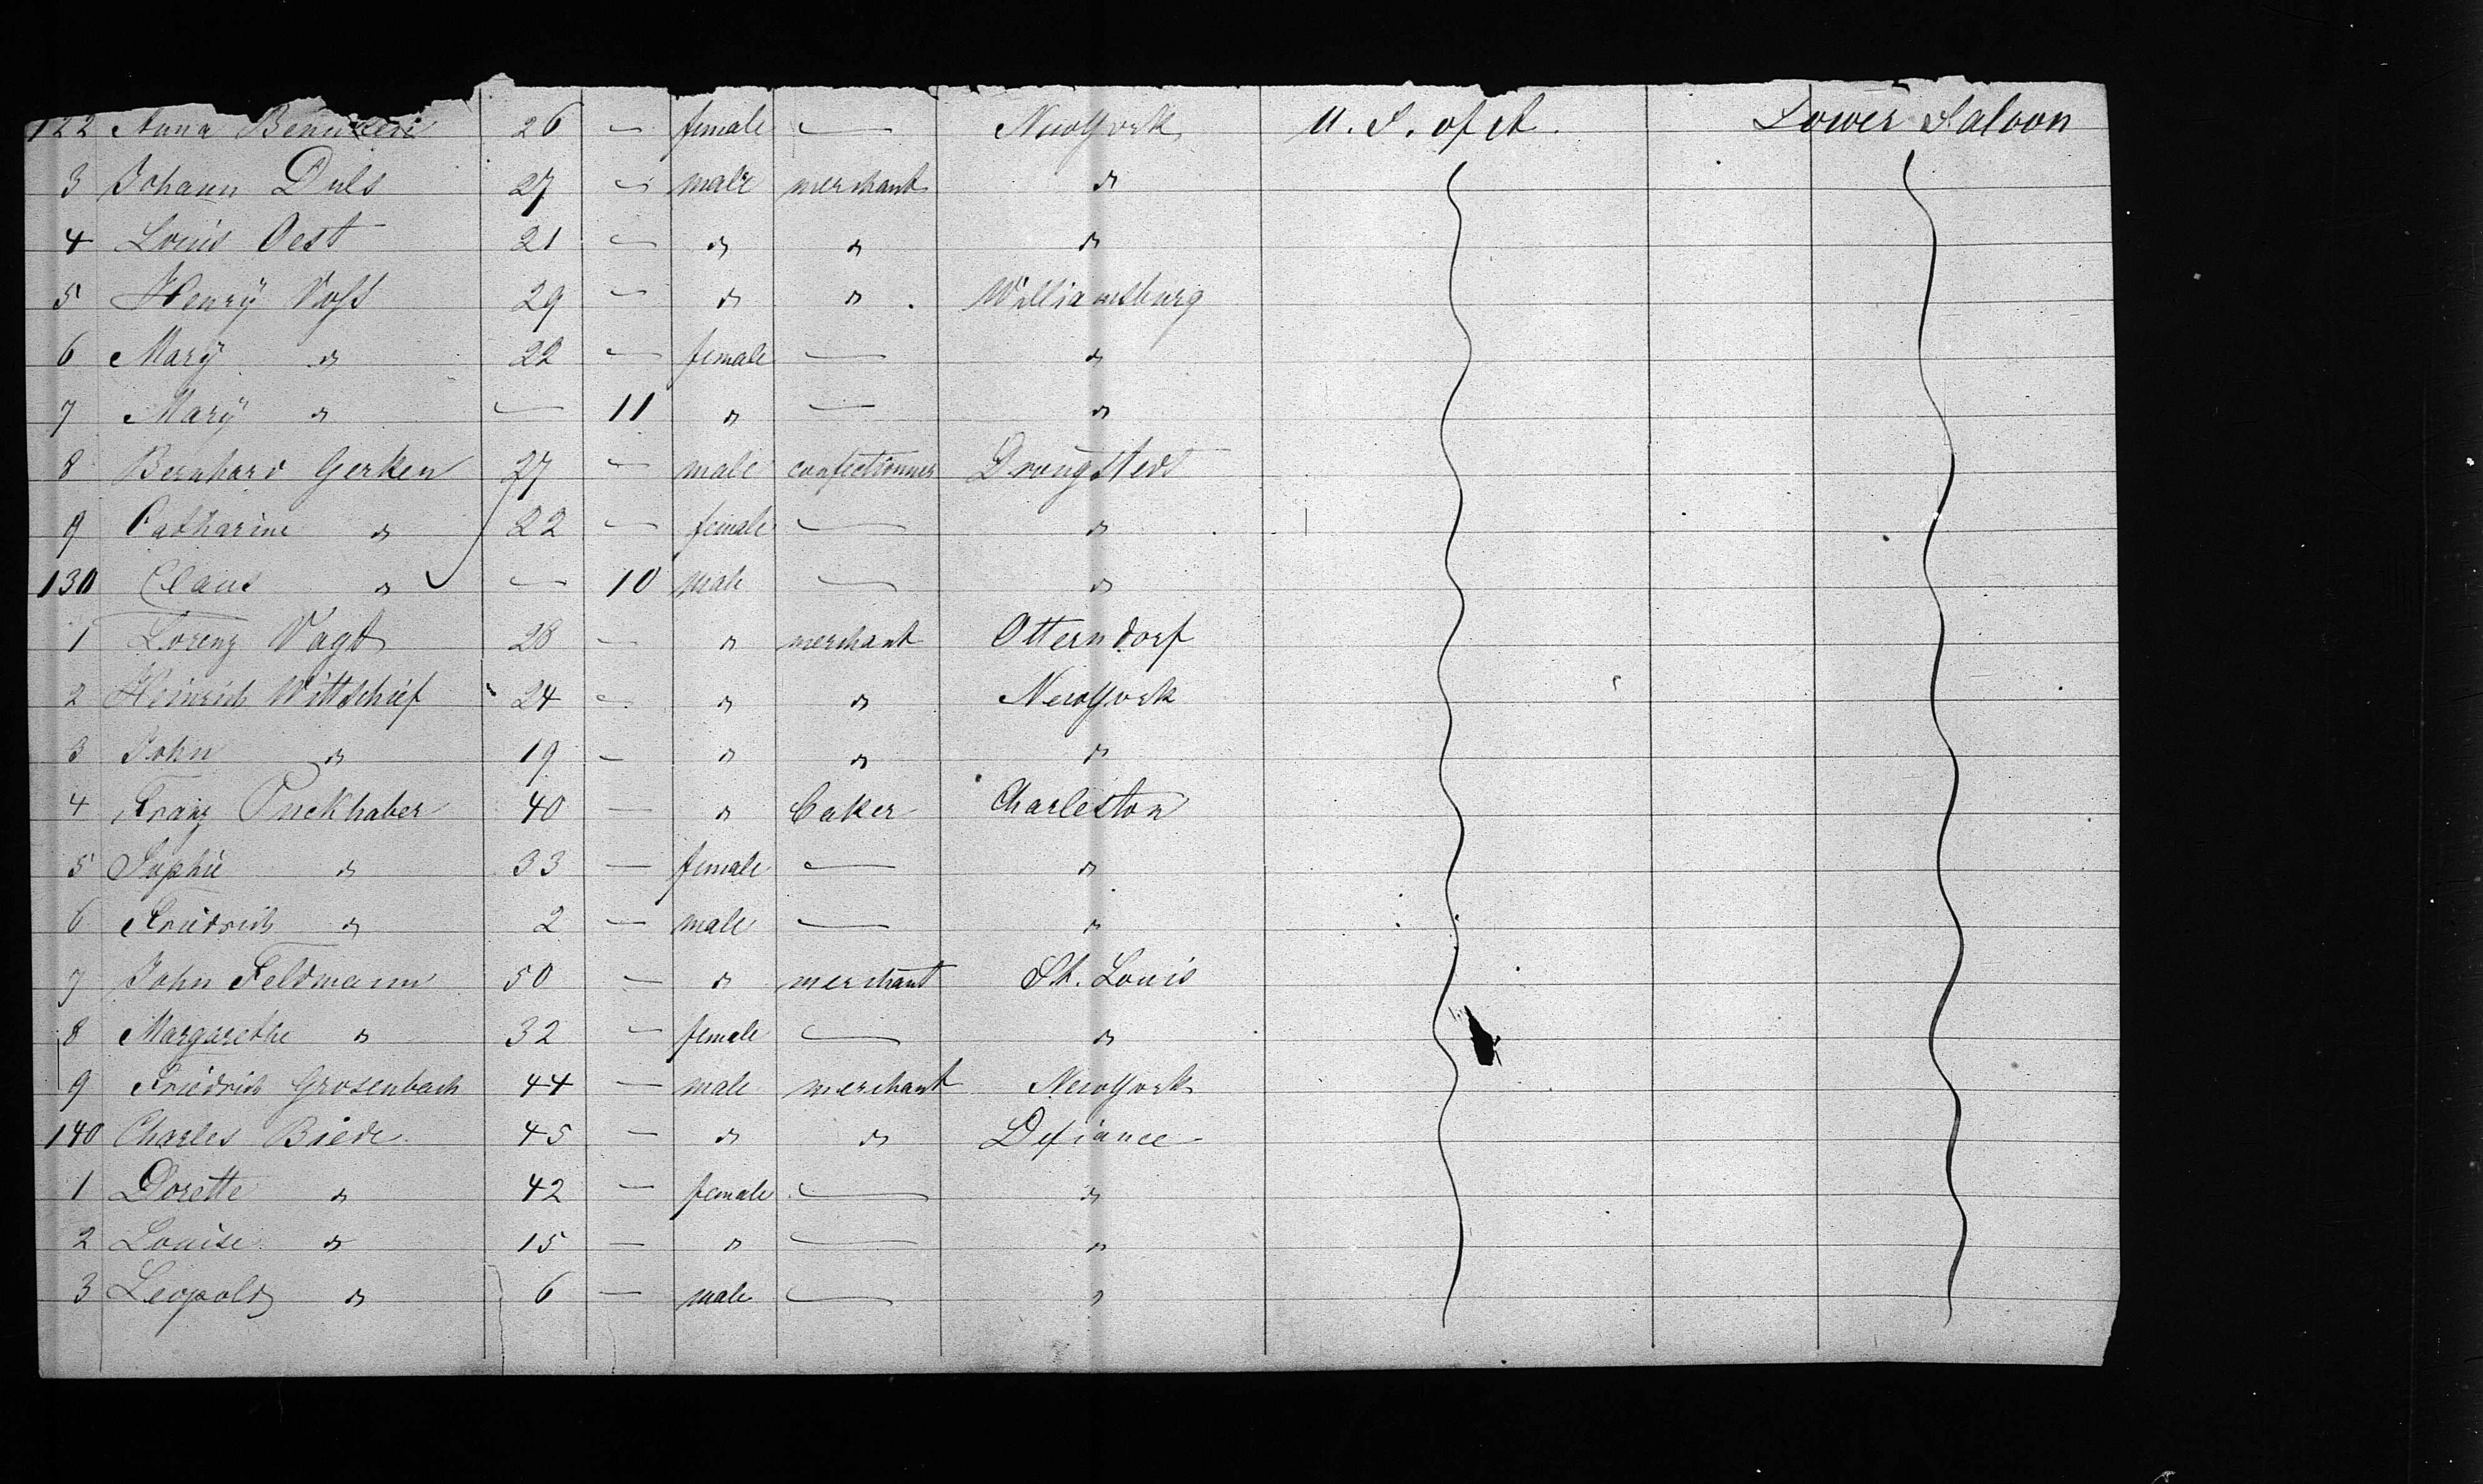 122 Anna 26 — female — NewYork U. S. of A. Lower Saloon
3 Johann Duls 27 — male merchant "
4 Louis Oest 21 — " " "
5 Henrÿ Voss 29 — " " Williamsburg
6 Marÿ " 22 — female — "
7 Marÿ " — 11 " — "
8 Bernhard Gerken 27 — male confectionner
9 Catharine " 22 — female — "
130 Claus " — 10 male — "
1 Lorenz Vagt 28 — " merchant Otterndorf
2 Heinrich Wittschief 24 — " " NewYork
3 John " 19 — " " "
4 Franz Puckhaber 40 — " baker Charleston
5 Sophie " 33 — female — "
6 Friedrich " 2 — male — "
7 John Feldmann 50 — " merchant St. Louis
8 Margarethe " 32 — female — "
9 Friedrich Grosenbach 44 — male merchant NewYork
140 Charles Biede 45 — " " Defiance
1 Dorette " 42 — female — "
2 Louise " 15 — " — "
3 Leopold " 6 — male — "